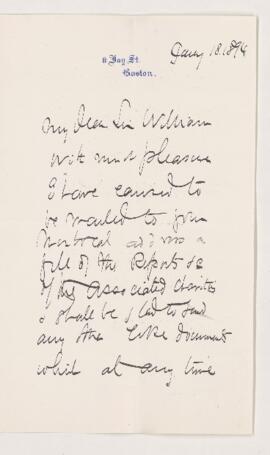 6 Joy St.
Boston.
Jany 18. 1894
My Dear Sir William
With much pleasure
I have caused to
be mailed to your
Montreal address a
file of the Reports &c
of the Associated Charities
& shall be glad to send
any other like documents
which at any time